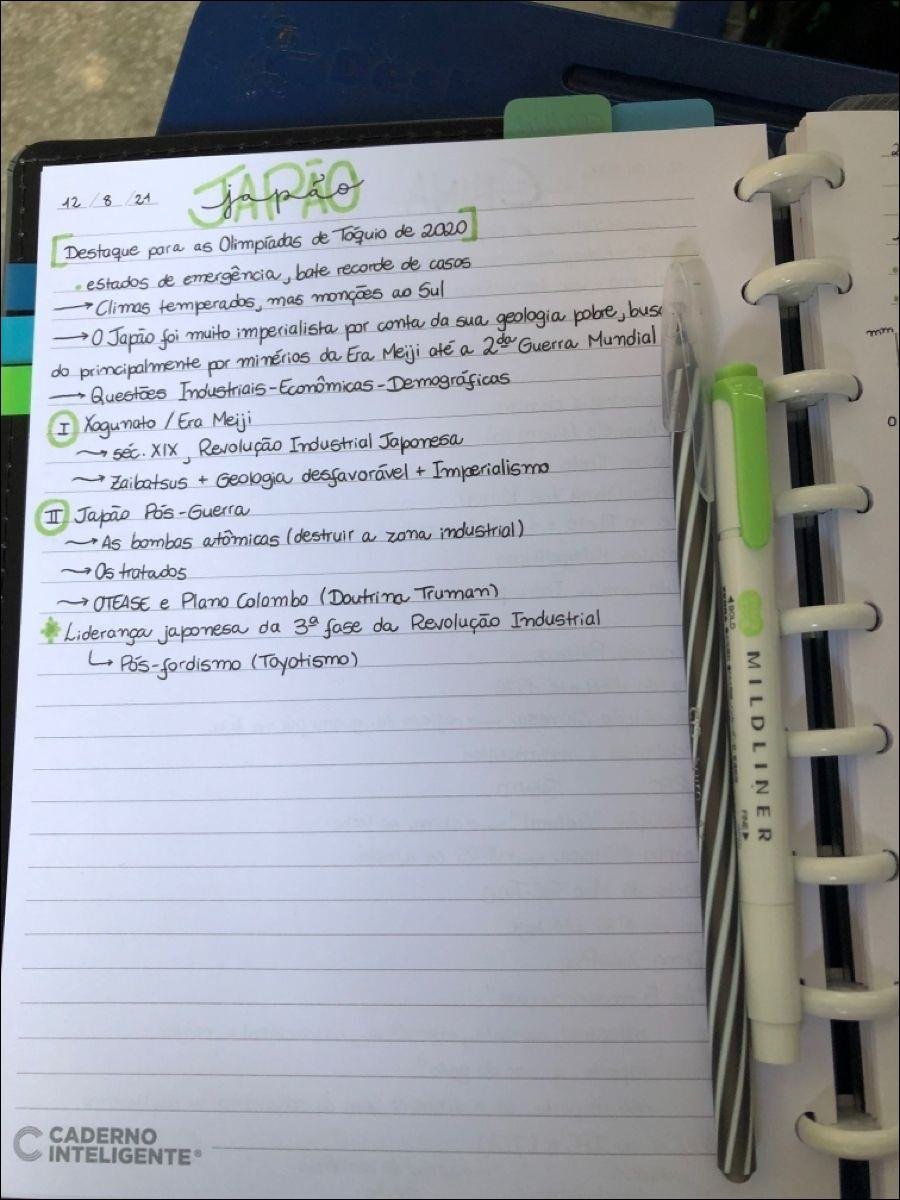 12 / 8 / 21
JAPÃO
japão
[Destaque para as Olimpíadas de Tóquio de 2020]
. estados de emergência, bate recorde de casos
→ Climas temperados, mas monções ao Sul
→ O Japão foi muito imperialista por conta da sua geologia pobre, busc
do principalmente por minérios da Era Meiji até a 2da Guerra Mundial
→ Questões Industriais-Econômicas-Demográficas
I Xogunato / Era Meiji
→ séc. XIX, Revolução Industrial Japonesa
→ Zaibatsus + Geologia desfavorável + Imperialismo
II Japão Pós-Guerra
→ As bombas atômicas (destruir a zona industrial)
→ Os tratados
→ OTEASE e Plano Colombo (Doutrina Truman)
* Liderança japonesa da 3ª fase da Revolução Industrial
↳ Pós-fordismo (Toyotismo)
mm
0
BOLD
MILDLINER
FINE
CADERNO
INTELIGENTE®